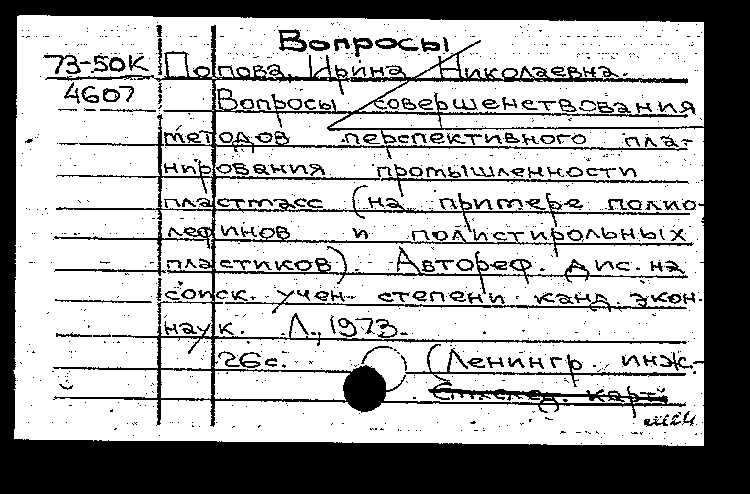 Вопросы
73-50К Попова, Ирина Николаевна.
4607 Вопросы совершенствования
методов перспективного пла-
нирования промышленности
пластмасс (на примере полио-
лефинов и полистирольных
пластиков). Автореф. дис. на
соиск. учен. степени канд. экон.
наук. Л., 1973.
26с. (Ленингр. инж.-